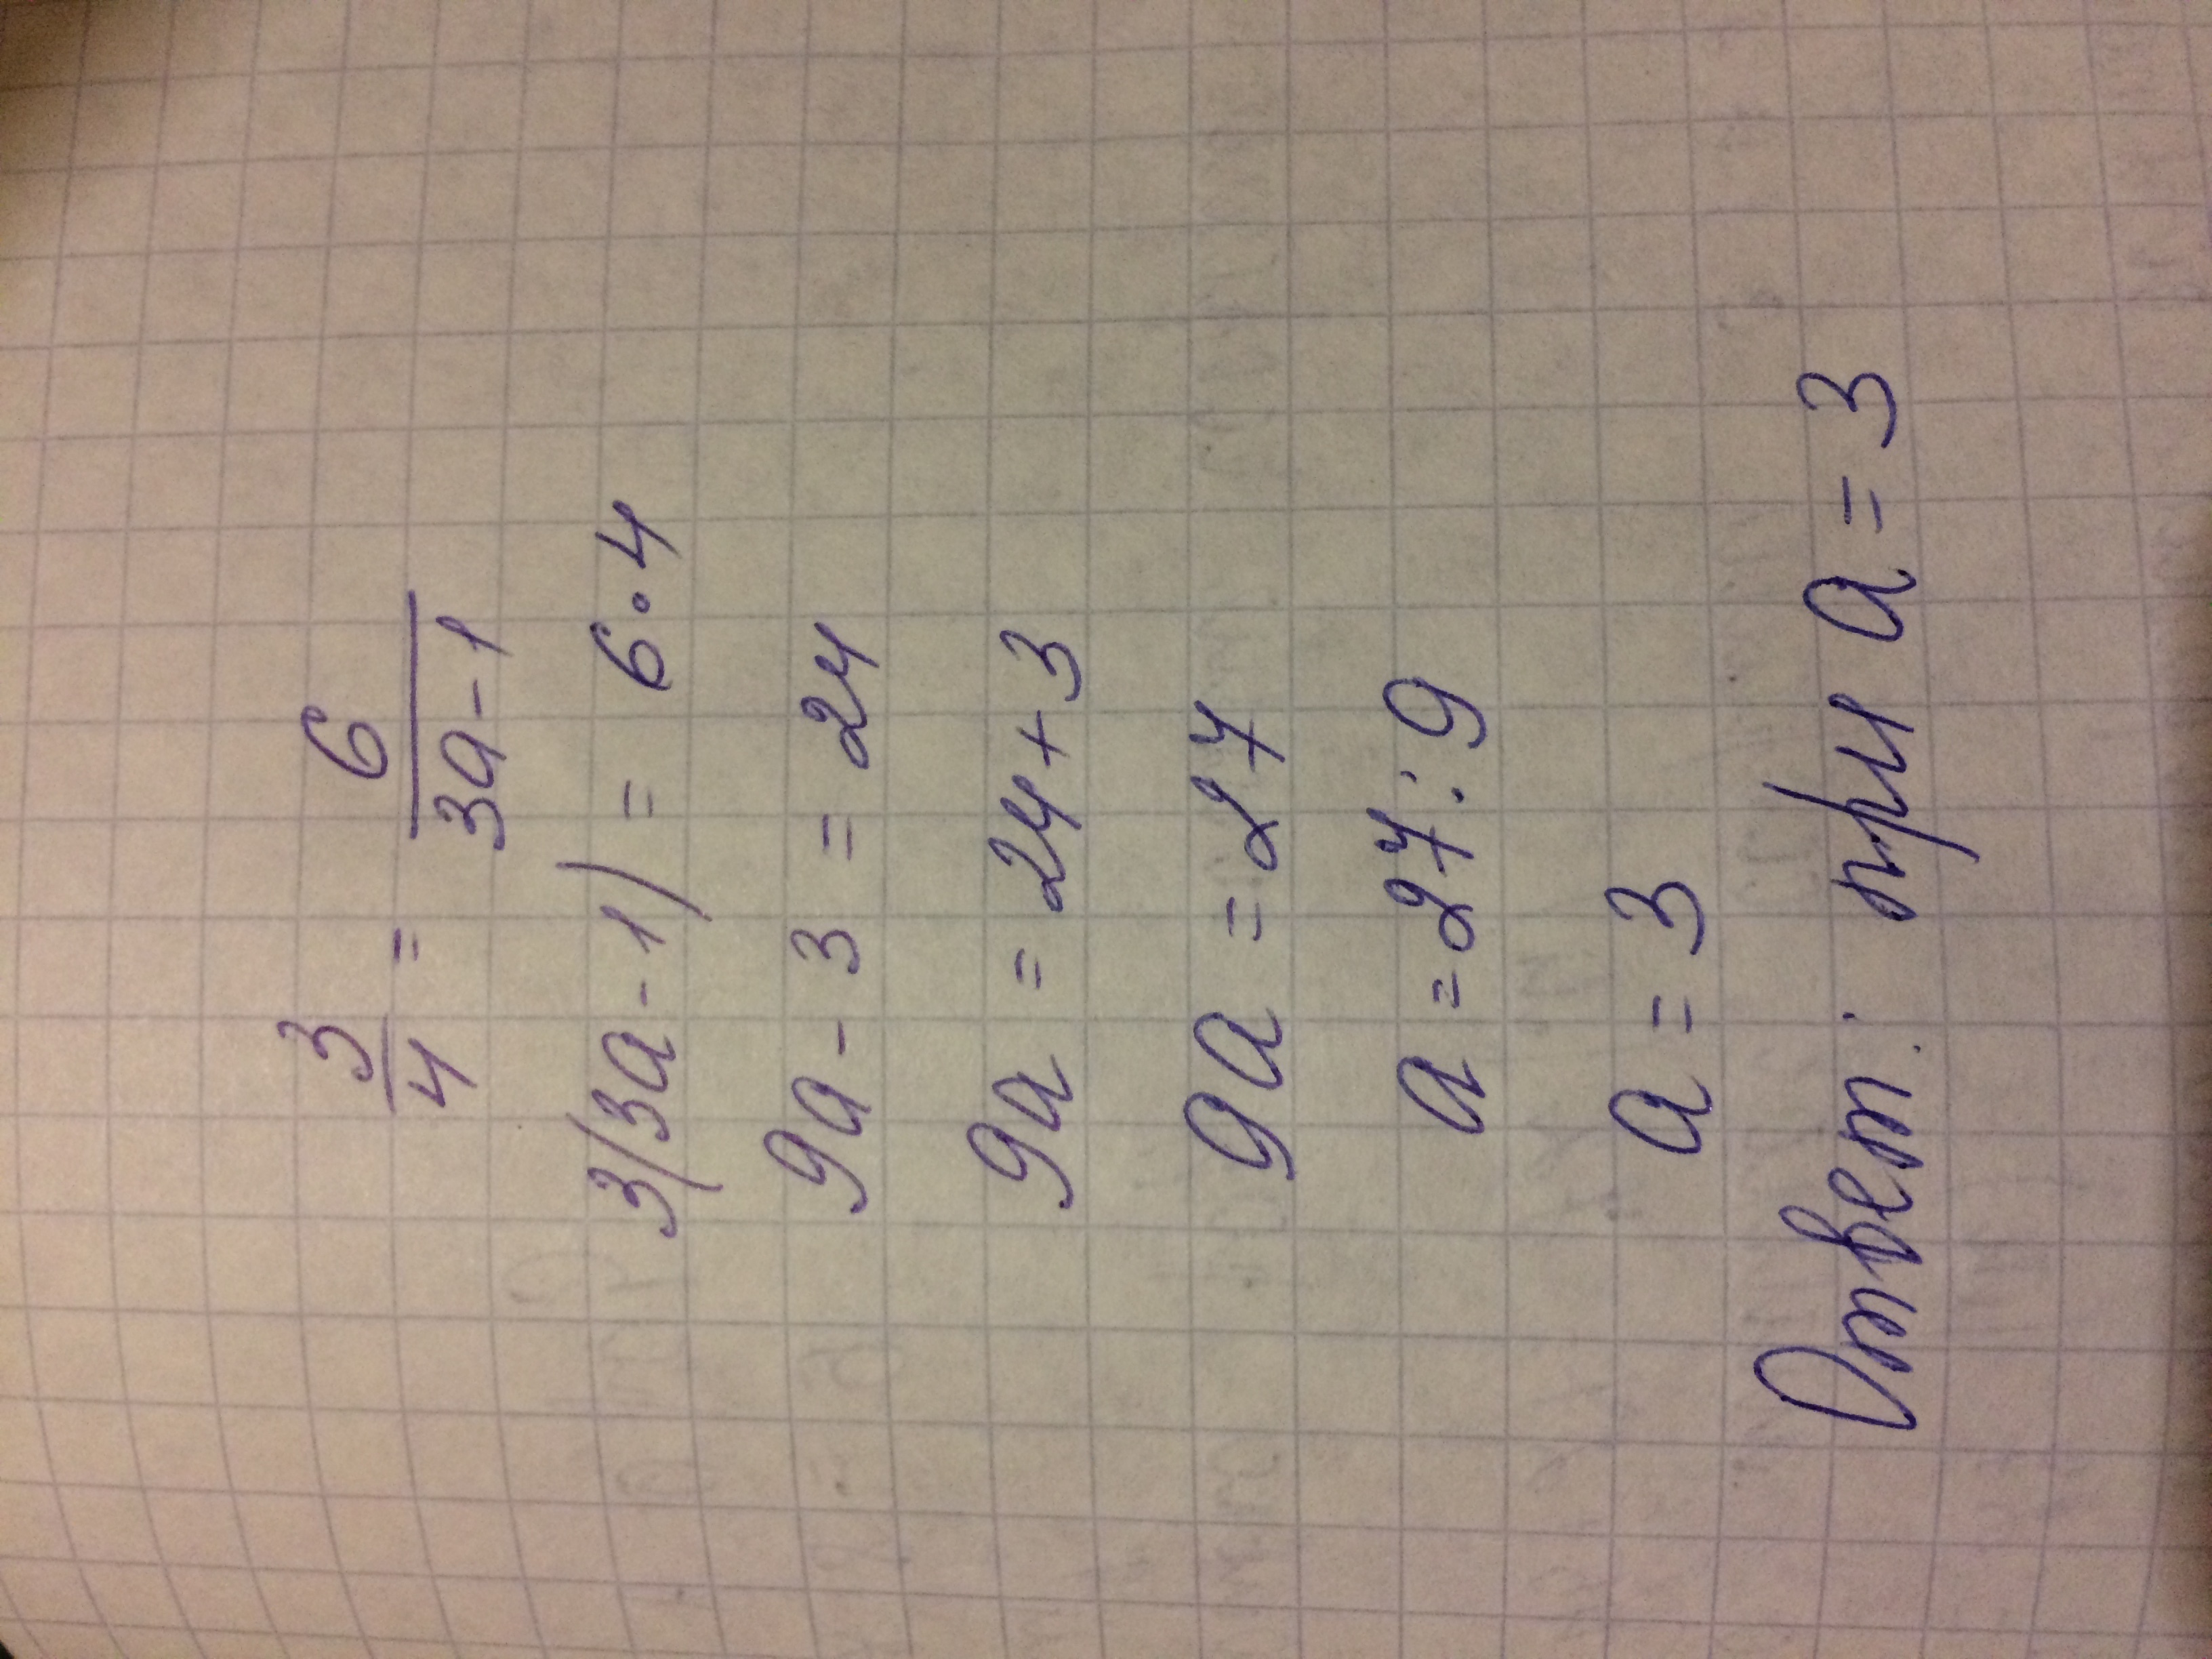 3/4 = 6/(3a-1)
3(3a-1) = 6·4
9a-3 = 24
9a = 24+3
9a = 27
a = 27:9
a = 3
Ответ: при a = 3